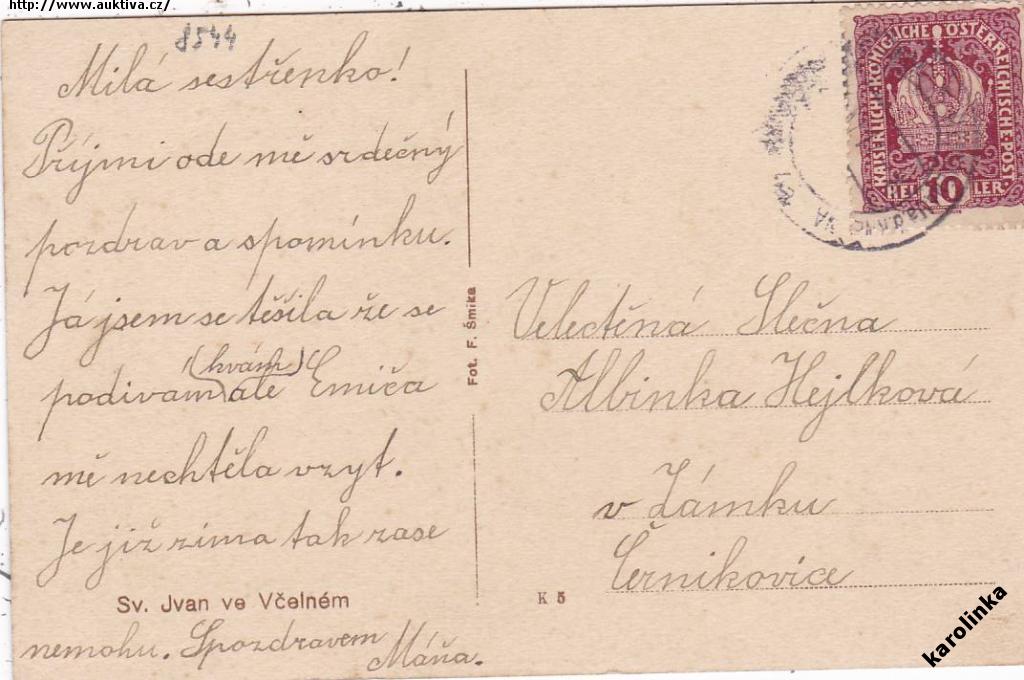 http://www.auktiva.cz/
8544
Milá sestřenko!
Příjmi ode mě srdečný
pozdrav a spomínku.
Já jsem se těšila že se
(kvám)
podivam ale Emiča
mě nechtěla vzyt.
Je již zima tak zase
Sv. Jvan ve Včelném
nemohu. Spozdravem
Máňa.
Fot. F. Šmika
K 5
KAISERLICHE KÖNIGLICHE ÖSTERREICHISCHE POST
10
Velectěná Slečna
Albinka Hejlková
v Zámku
Černikovice
karolinka